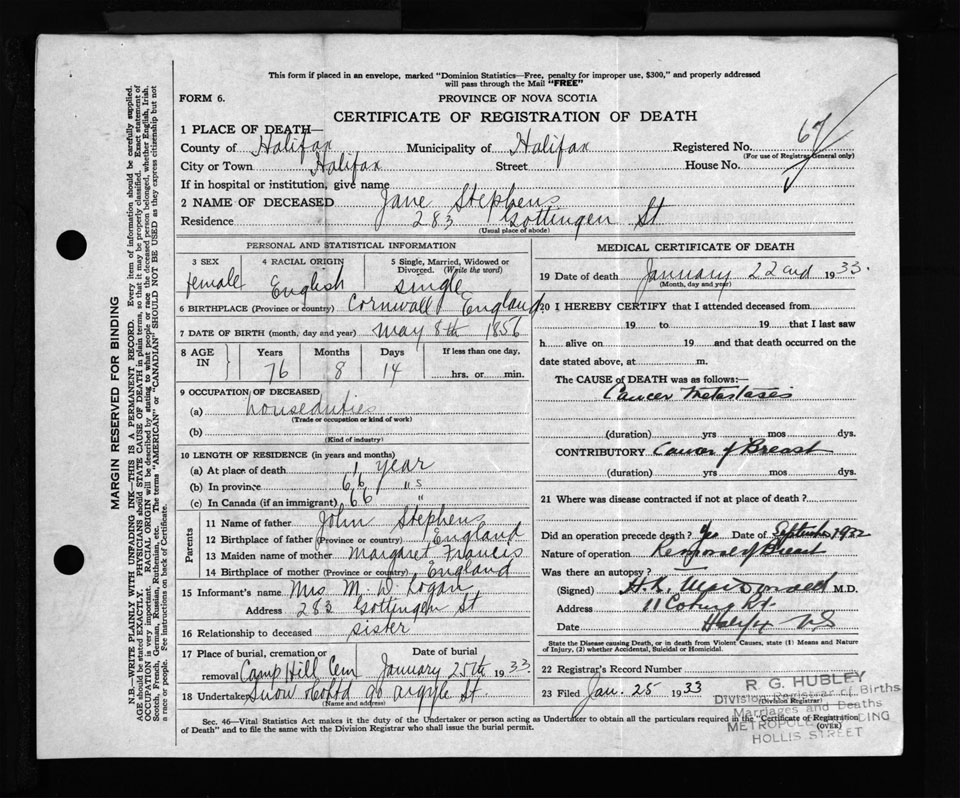 This form if placed in an envelope, marked "Dominion Statistics—Free, penalty for improper use, $300," and properly addressed
will pass through the Mail "FREE"
FORM 6.
PROVINCE OF NOVA SCOTIA
CERTIFICATE OF REGISTRATION OF DEATH
1 PLACE OF DEATH—
County of Halifax Municipality of Halifax Registered No. 67
(For use of Registrar General only)
City or Town Halifax Street House No.
If in hospital or institution, give name
2 NAME OF DECEASED Jane Stephens
Residence 283 Gottingen St
(Usual place of abode)
PERSONAL AND STATISTICAL INFORMATION
3 SEX 4 RACIAL ORIGIN 5 Single, Married, Widowed or
Divorced. (Write the word)
female English single
6 BIRTHPLACE (Province or country) Cornwall England
7 DATE OF BIRTH (month, day and year) May 8th 1856
8 AGE IN Years Months Days If less than one day,
76 8 14 hrs. or min.
9 OCCUPATION OF DECEASED
(a) houseduties
(Trade or occupation or kind of work)
(b)
(Kind of industry)
10 LENGTH OF RESIDENCE (in years and months)
(a) At place of death 1 year
(b) In province 66 "s
(c) In Canada (if an immigrant) 66 "
Parents
11 Name of father John Stephens
12 Birthplace of father (Province or country) England
13 Maiden name of mother Margaret Francis
14 Birthplace of mother (Province or country) England
15 Informant's name Mrs M. D. Logan
Address 283 Gottingen St
16 Relationship to deceased sister
17 Place of burial, cremation or removal Date of burial
Camp Hill Cem January 25th 1933
18 Undertaker Snow & Co Ltd 90 Argyle St.
(Name and address)
MEDICAL CERTIFICATE OF DEATH
19 Date of death January 22nd 1933.
(Month, day and year)
20 I HEREBY CERTIFY that I attended deceased from
19 to 19 that I last saw
h alive on 19 and that death occurred on the
date stated above, at m.
The CAUSE of DEATH was as follows:—
Cancer Metastases
(duration) yrs mos dys.
CONTRIBUTORY Cancer of Breast
(duration) yrs mos dys.
21 Where was disease contracted if not at place of death?
Did an operation precede death? Yes Date of September 1932
Nature of operation of Breast
Was there an autopsy?
(Signed) M.D.
Address 11 Coburg Rd.
Date Halifax NS
State the Disease causing Death, or in death from Violent Causes, state (1) Means and Nature
of Injury, (2) whether Accidental, Suicidal or Homicidal.
22 Registrar's Record Number
23 Filed Jan. 25 1933
(Division Registrar)
R. G. HUBLEY
Division Registrar of Births
Marriages and Deaths
METROPOLE BUILDING
HOLLIS STREET
Sec. 46—Vital Statistics Act makes it the duty of the Undertaker or person acting as Undertaker to obtain all the particulars required in the "Certificate of Registration
of Death" and to file the same with the Division Registrar who shall issue the burial permit.
(OVER)
MARGIN RESERVED FOR BINDING
N.B.—WRITE PLAINLY WITH UNFADING INK—THIS IS A PERMANENT RECORD. Every item of information should be carefully supplied.
AGE should be stated EXACTLY. PHYSICIANS should STATE CAUSE OF DEATH in plain terms, so that it may be properly classified. Exact statement of
OCCUPATION is very important. RACIAL ORIGIN will be described by stating to what people or race the deceased person belonged, whether English, Irish,
Scotch, French, German, Russian, Ruthenian, etc. The terms "AMERICAN" or "CANADIAN" SHOULD NOT BE USED as they express citizenship but not
a race or people. See instructions on back of Certificate.